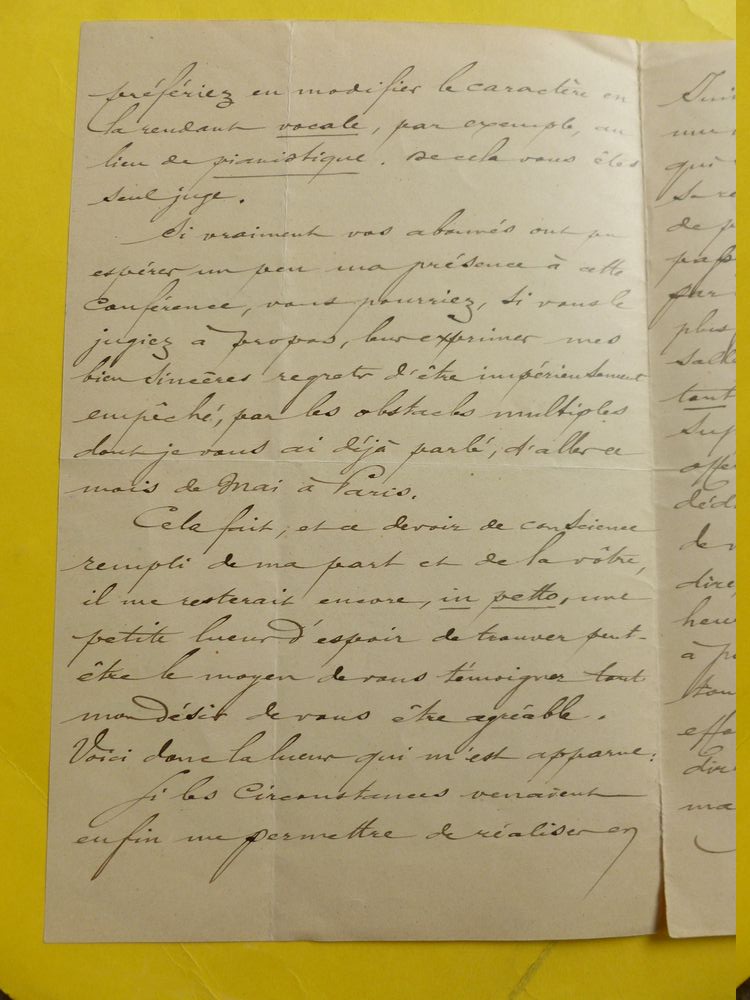 préfériez en modifier le caractère en
la rendant vocale, par exemple, au
lieu de pianistique. De cela vous êtes
seul juge.
Si vraiment vos abonnés ont pu
espérer un peu ma présence à cette
Conférence, vous pourriez, si vous le
jugiez à propos, leur exprimer mes
bien sincères regrets d'être impérieusement
empêché, par les obstacles multiples
dont je vous ai déjà parlé, d'aller ce
mois de Mai à Paris.
Cela fait, et ce devoir de conscience
rempli de ma part et de la vôtre,
il me resterait encore, in petto, une
petite lueur d'espoir de trouver peut-
être le moyen de vous témoigner tout
mon désir de vous être agréable.
Voici donc la lueur qui m'est apparue:
Si les Circonstances venaient
enfin me permettre de réaliser en
qui
de
plus
tant
à